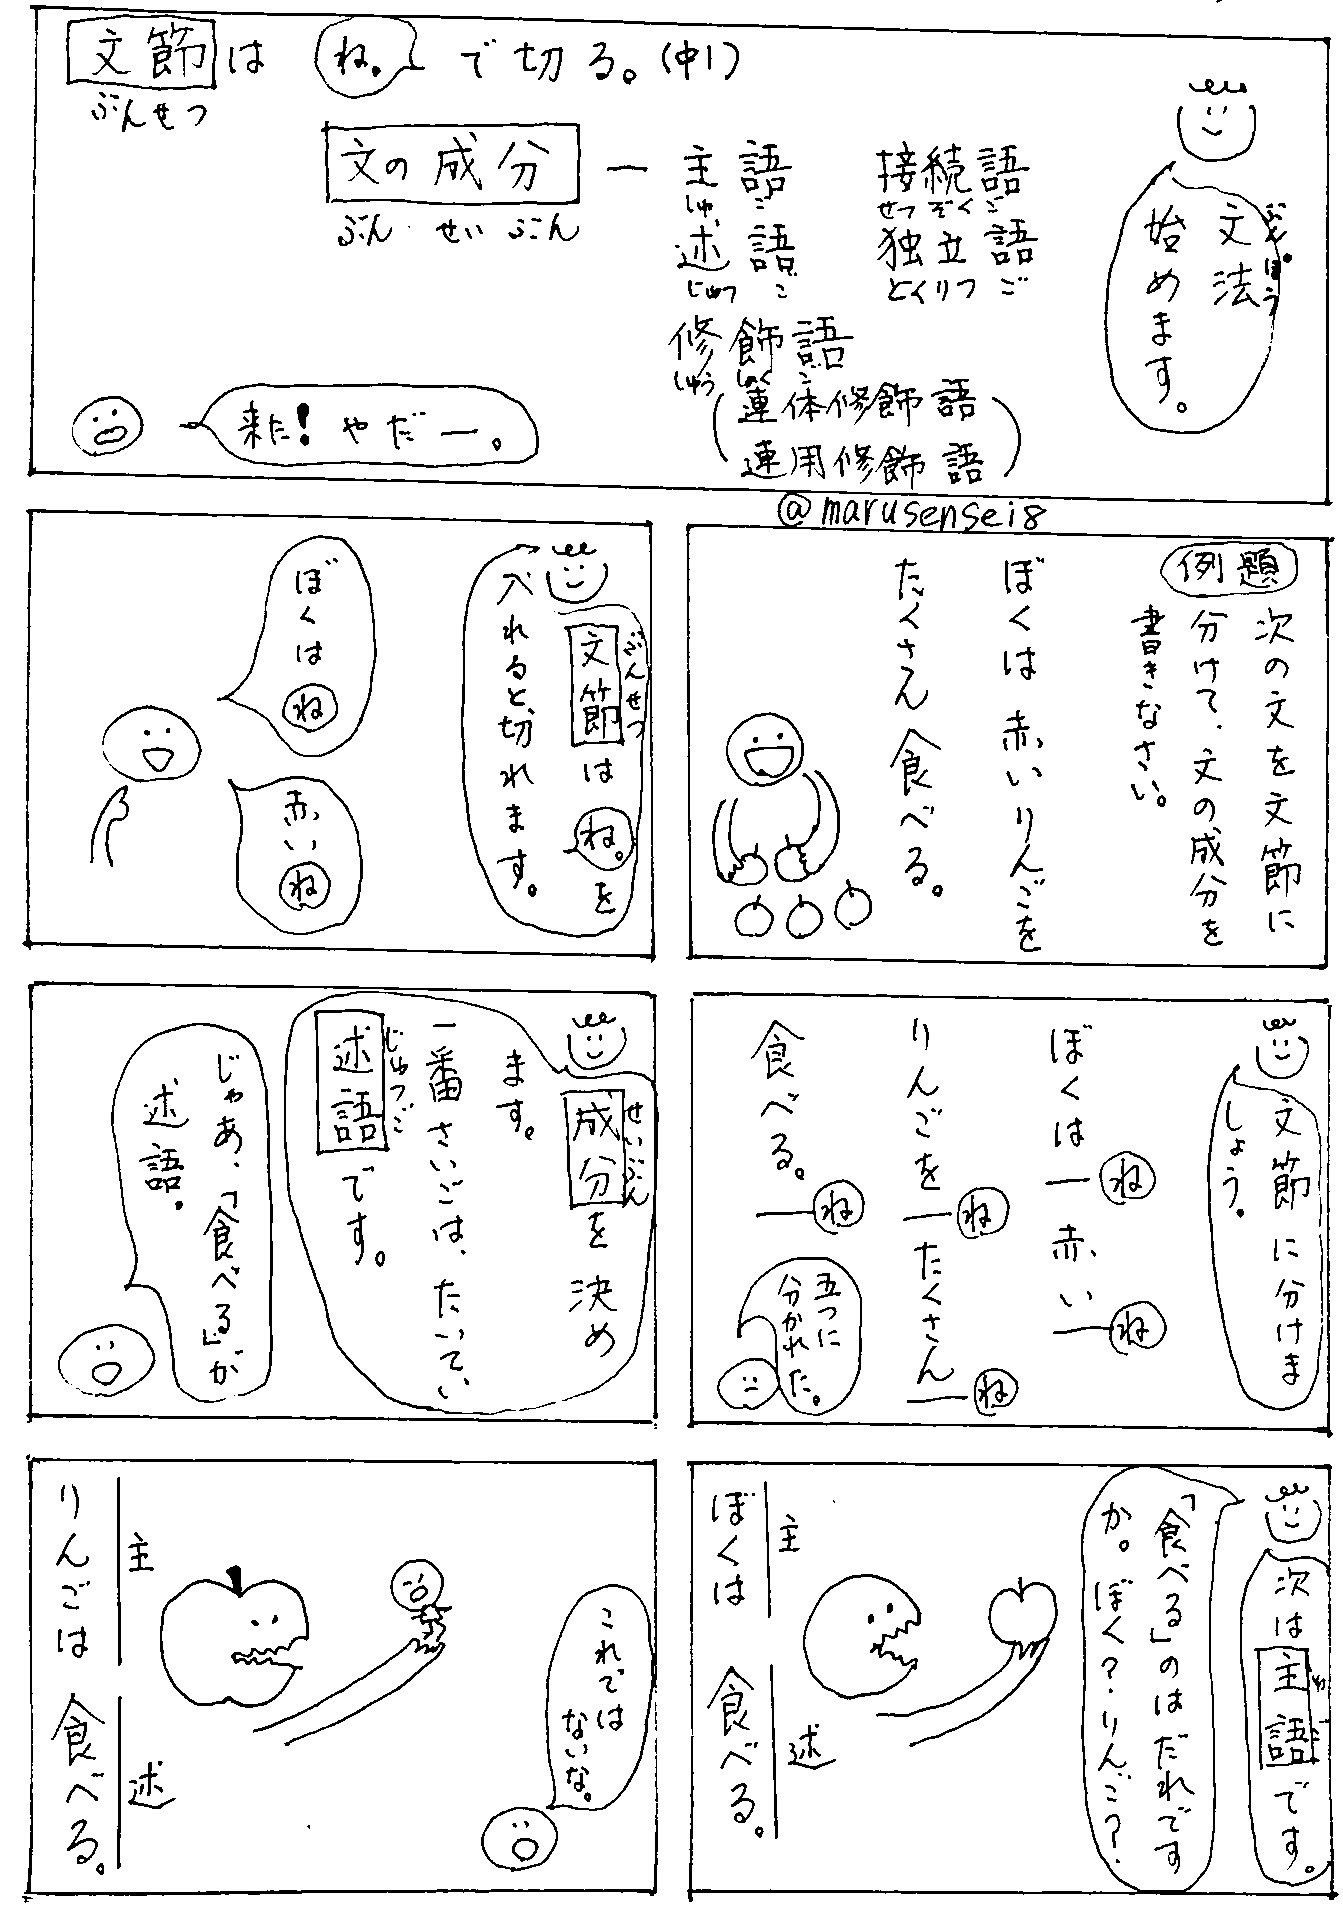 文節は ね。で切る。(中1)
ぶんせつ
文の成分 ー 主語 接続語
ぶん せいぶん
しゅご せつぞくご
述語 独立語
じゅつご どくりつご
修飾語
しゅうしょくご
(連体修飾語
連用修飾語)
文法
ぶんぽう
始めます。
来た!やだー。
@marusensei8
例題
次の文を文節に
分けて、文の成分を
書きなさい。
ぼくは赤いりんごを
たくさん食べる。
文節は ね。を
ぶんせつ
入れると、切れます。
ぼくは ね
赤い ね
文節に分けま
しょう。
ぼくはーね 赤いーね
りんごをーね たくさんーね
食べる。ーね
五つに
分かれた。
成分を決め
せいぶん
ます。
一番さいごは、たいてい
述語です。
じゅつご
じゃあ、「食べる」が
述語。
次は主語です。
しゅご
「食べる」のはだれです
か。ぼく?りんご?
主 述
ぼくは 食べる。
これでは
ないな。
主 述
りんごは 食べる。